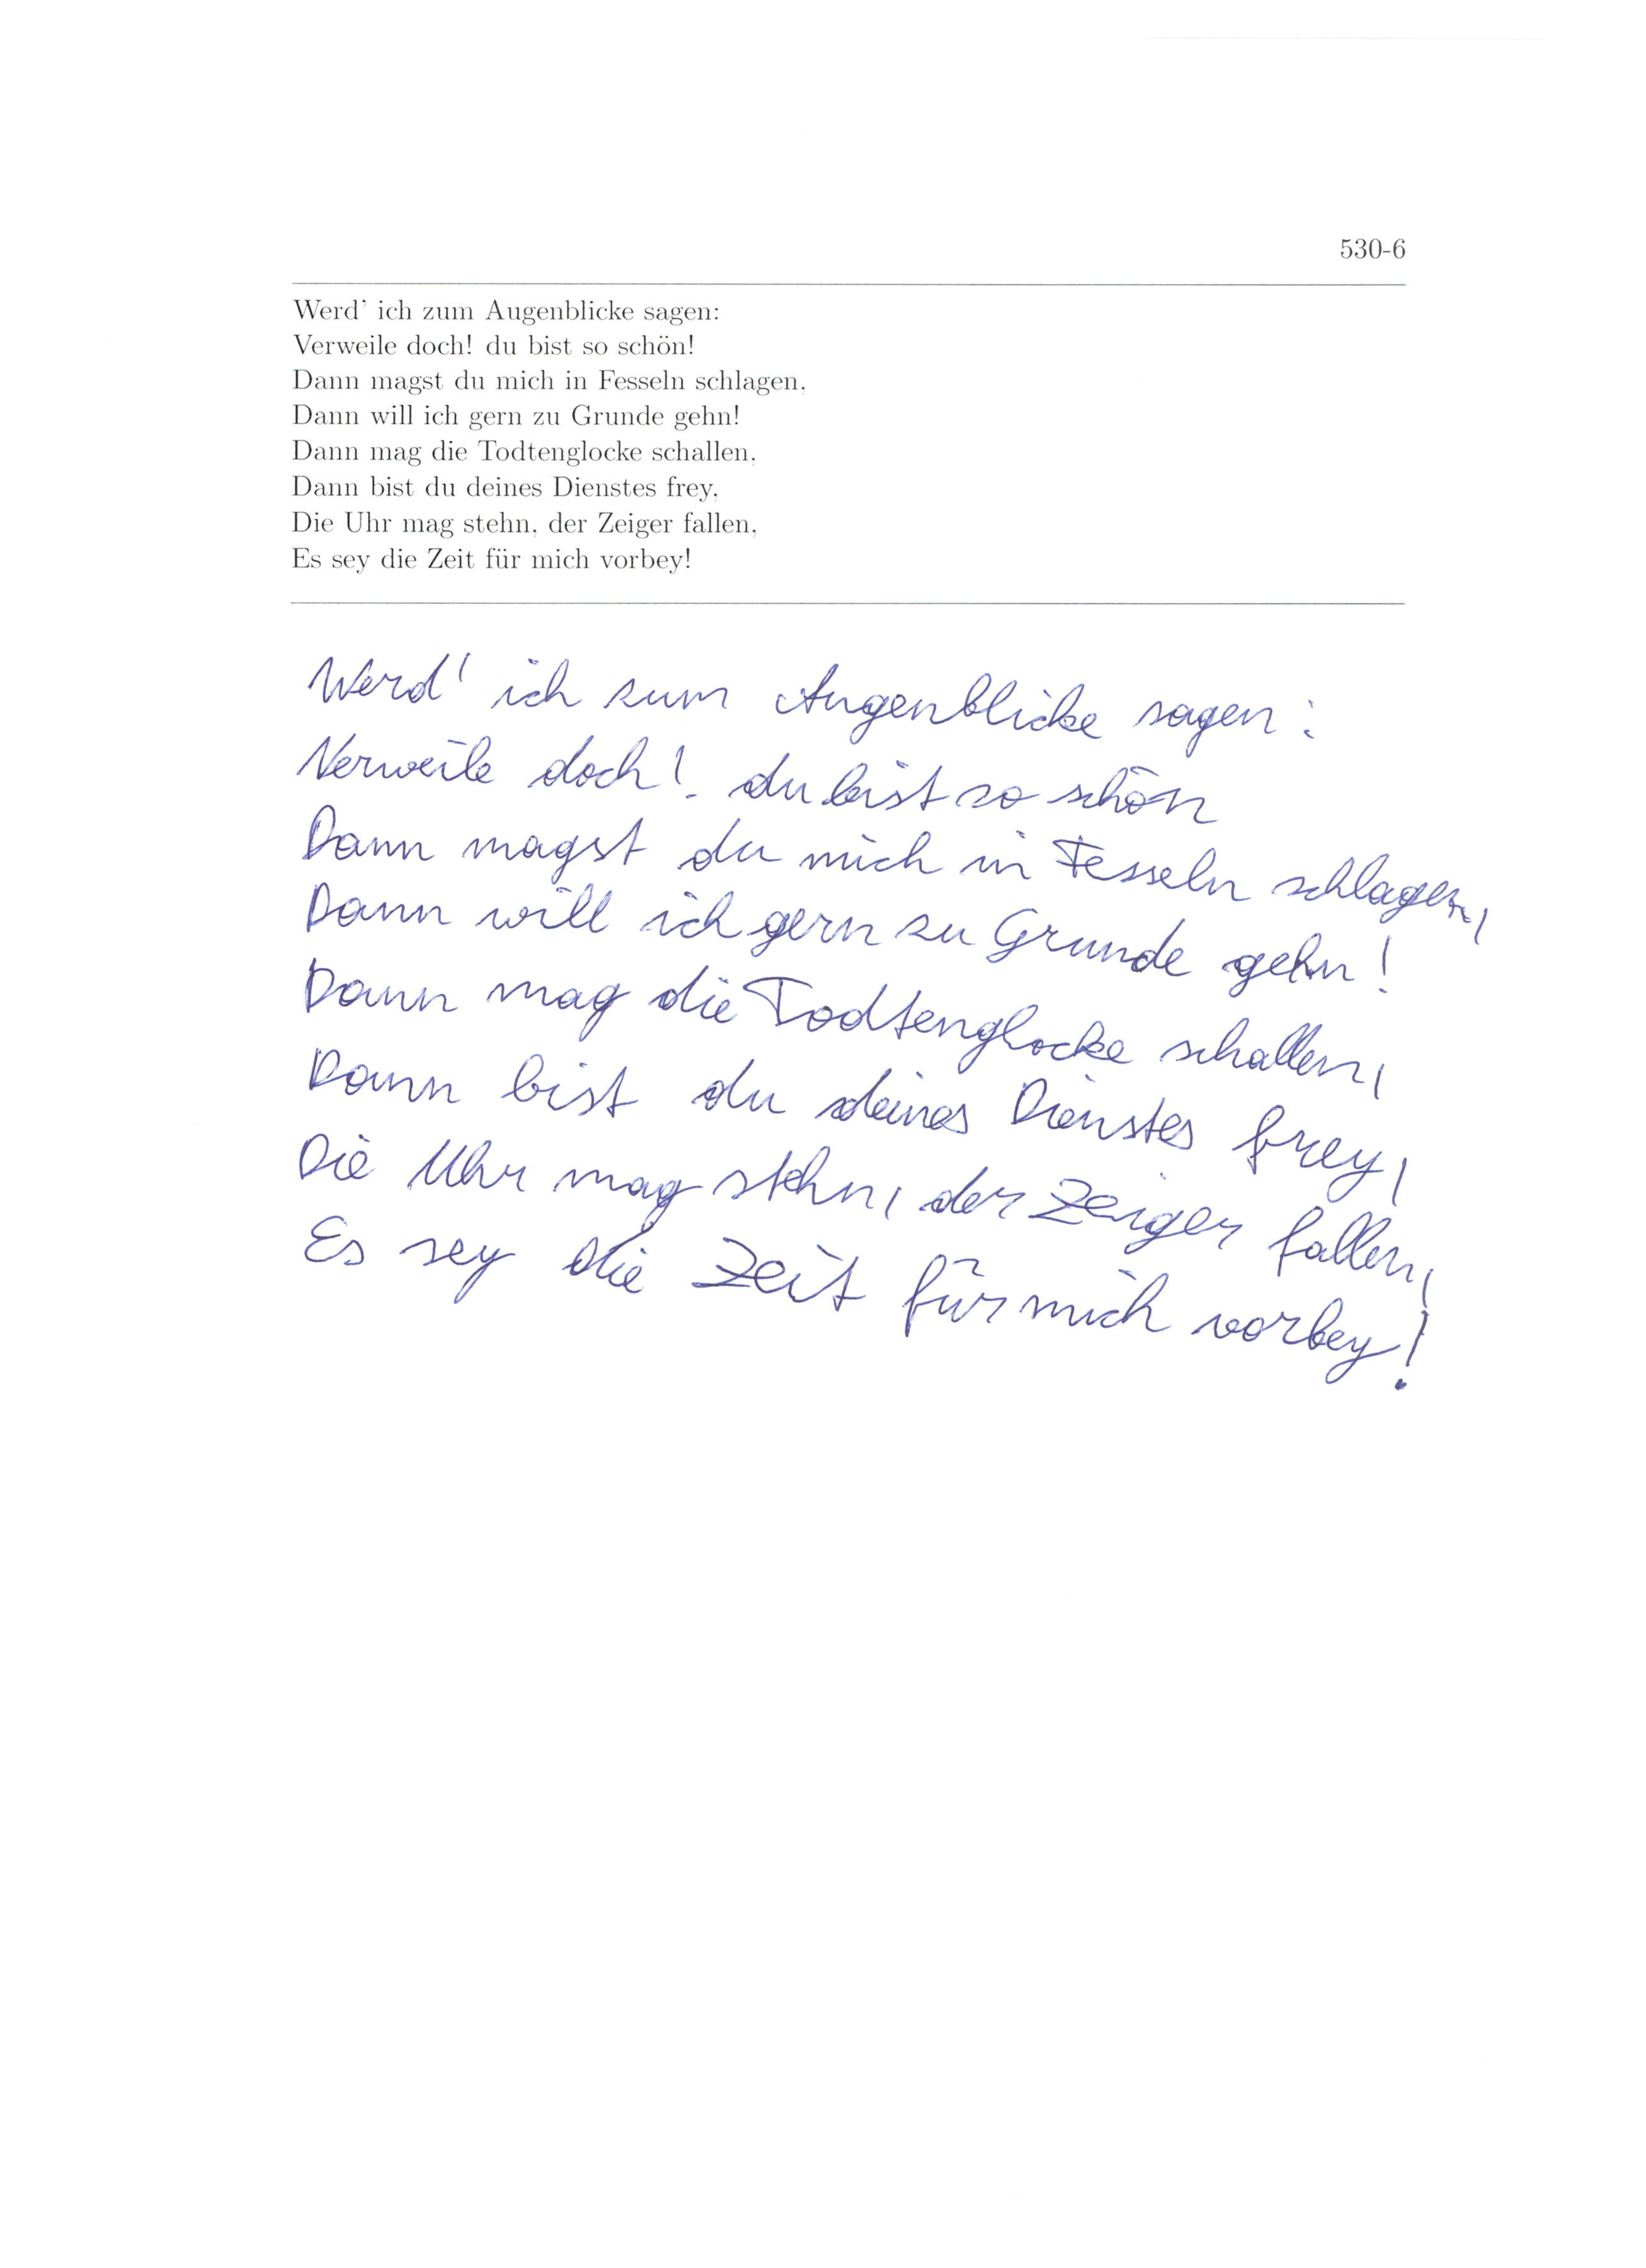 530-6
Werd' ich zum Augenblicke sagen:
Verweile doch! du bist so schön!
Dann magst du mich in Fesseln schlagen,
Dann will ich gern zu Grunde gehn!
Dann mag die Todtenglocke schallen,
Dann bist du deines Dienstes frey,
Die Uhr mag stehn, der Zeiger fallen,
Es sey die Zeit für mich vorbey!
Werd' ich zum Augenblicke sagen:
Verweile doch! du bist so schön
Dann magst du mich in Fesseln schlagen,
Dann will ich gern zu Grunde gehn!
Dann mag die Todtenglocke schallen,
Dann bist du deines Dienstes frey,
Die Uhr mag stehn, der Zeiger fallen,
Es sey die Zeit für mich vorbey!